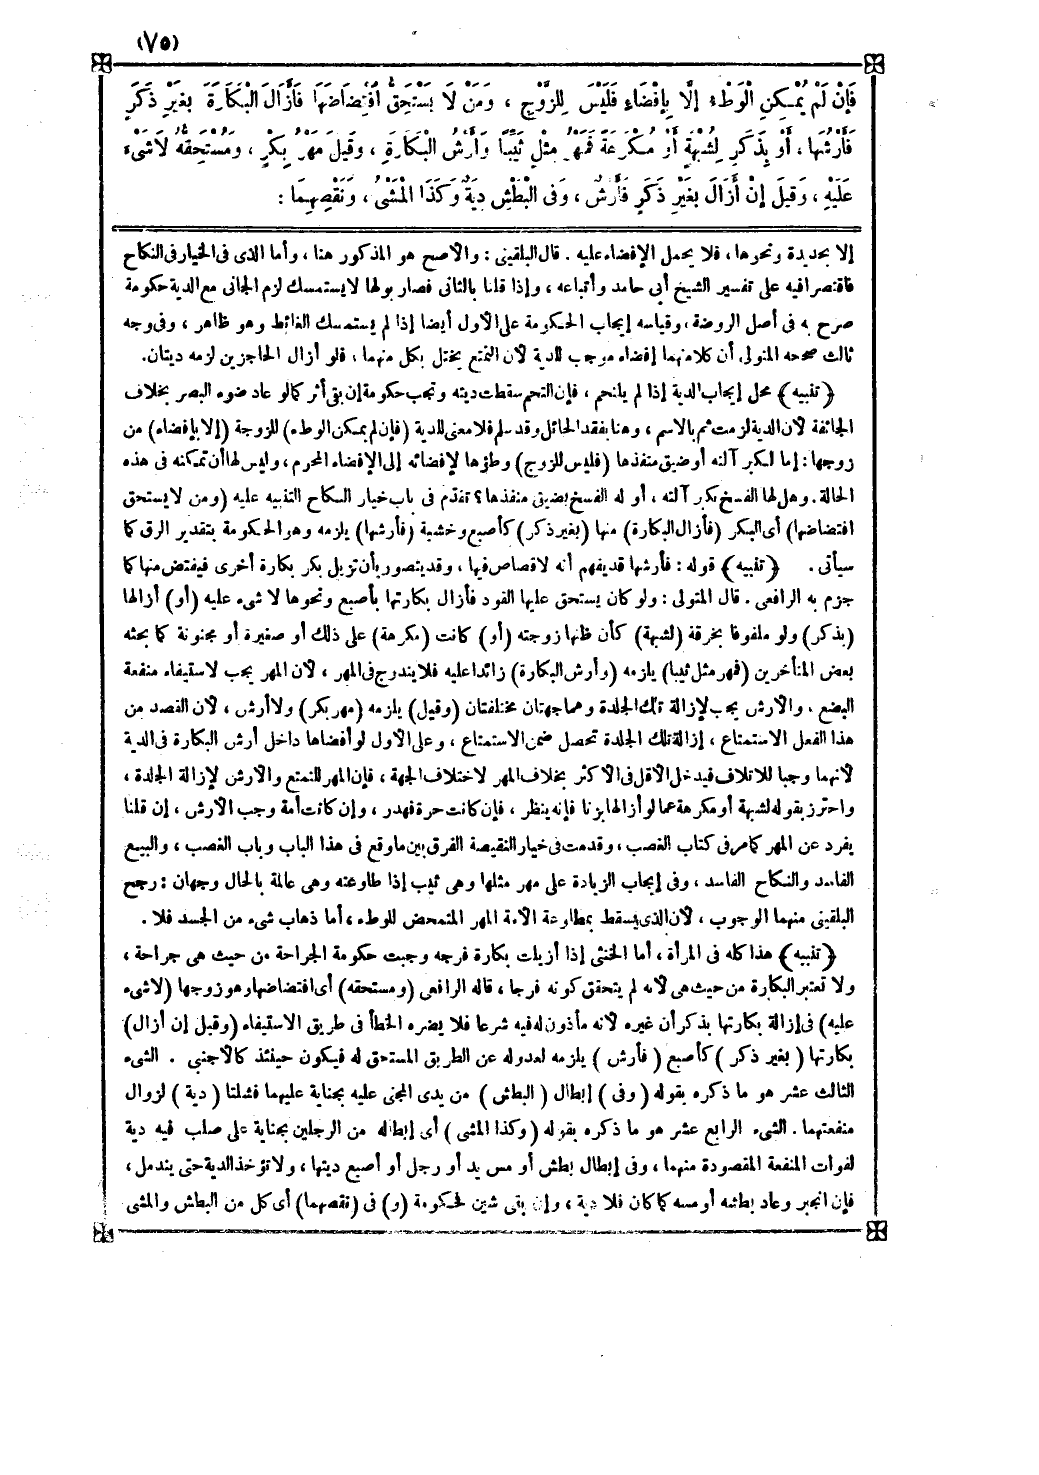 (٧٥)
فَإِنْ لَمْ يُمْكِنِ الْوَطْءُ إِلَّا بِإِفْضَاءٍ فَلَيْسَ لِلزَّوْجِ ، وَمَنْ لَا يَسْتَحِقُّ افْتِضَاضَهَا فَأَزَالَ الْبَكَارَةَ بِغَيْرِ ذَكَرٍ
فَأَرْشُهَا ، أَوْ بِذَكَرٍ لِشُبْهَةٍ أَوْ مُكْرَهَةً فَمَهْرُ مِثْلٍ ثَيِّبًا وَأَرْشُ الْبَكَارَةِ ، وَقِيلَ مَهْرُ بِكْرٍ ، وَمُسْتَحِقُّهُ لَا شَىْءَ
عَلَيْهِ ، وَقِيلَ إِنْ أَزَالَ بِغَيْرِ ذَكَرٍ فَأَرْشٌ ، وَفِى الْبَطْشِ دِيَةٌ وَكَذَا الْمَشْىُ ، وَنَقْصِهِمَا :
إلا بحديدة ونحوها ، فلا يحمل الإفضاء عليه . قال البلقينى : والأصح هو المذكور هنا ، وأما الذى فى الخيار فى النكاح
فاقتصرا فيه على تفسير الشيخ أبى حامد وأتباعه ، وإذا قلنا بالثانى فصار بولها لا يستمسك لزم الجانى مع الدية حكومة
صرح به فى أصل الروضة ، وقياسه إيجاب الحكومة على الأول أيضا إذا لم يستمسك الغائط وهو ظاهر ، وفى وجه
ثالث صححه المتولى أن كلا منهما إفضاء موجب للدية لأن التمتع يختل بكل منهما ، فلو أزال الحاجزين لزمه ديتان.
﴿تنبيه﴾ محل إيجاب الدية إذا لم يلتحم ، فإن التحم سقطت ديته وتجب حكومة إن بقى أثر كما لو عاد ضوء البصر بخلاف
الجائفة لأن الدية لزمت ثم بالاسم ، وهنا بفقد الحائل وقد سلم فلا معنى للدية (فإن لم يمكن الوطء) للزوجة (إلا بإفضاء) من
زوجها : إما لكبر آلته أو ضيق منفذها (فليس للزوج) وطؤها لإفضائه إلى الإفضاء المحرم ، وليس لها أن تمكنه فى هذه
الحالة . وهل لها الفسخ بكبر آلته ، أو له الفسخ بضيق منفذها ؟ تقدّم فى باب خيار النكاح التنبيه عليه (ومن لا يستحق
افتضاضها) أى البكر (فأزال البكارة) منها (بغير ذكر) كأصبع وخشبة (فأرشها) يلزمه وهو الحكومة بتقدير الرق كما
سيأتى . ﴿تنبيه﴾ قوله : فأرشها قد يفهم أنه لا قصاص فيها ، وقد يتصور بأن تزيل بكر بكارة أخرى فيقتص منها كما
جزم به الرافعى . قال المتولى : ولو كان يستحق عليها القود فأزال بكارتها بأصبع ونحوها لا شىء عليه (أو) أزالها
(بذكر) ولو ملفوفا بخرقة (لشبهة) كأن ظنها زوجته (أو) كانت (مكرهة) على ذلك أو صغيرة أو مجنونة كما بحثه
بعض المتأخرين (فمهر مثل ثيبا) يلزمه (وأرش البكارة) زائدا عليه فلا يندرج فى المهر ، لأن المهر يجب لاستيفاء منفعة
البضع ، والأرش يجب لإزالة تلك الجلدة وهما جهتان مختلفتان (وقيل) يلزمه (مهر بكر) ولا أرش ، لأن القصد من
هذا الفعل الاستمتاع ، إزالة تلك الجلدة تحصل ضمن الاستمتاع ، وعلى الأول لو أفضاها داخل أرش البكارة فى الدية
لأنهما وجبا للاتلاف فيدخل الأقل فى الأكثر بخلاف المهر لاختلاف الجهة ، فإن المهر للتمتع والأرش لإزالة الجلدة ،
واحترز بقوله لشبهة أو مكرهة عما لو أزالها بزنا فإنه ينظر ، فإن كانت حرة فهدر ، وإن كانت أمة وجب الأرش ، إن قلنا
يفرد عن المهر كما مر فى كتاب الغصب ، وقدمت فى خيار النقيصة الفرق بين ما وقع فى هذا الباب وباب الغصب ، والبيع
الفاسد والنكاح الفاسد ، وفى إيجاب الزيادة على مهر مثلها وهى ثيب إذا طاوعته وهى عالمة بالحال وجهان : رجح
البلقينى منهما الوجوب ، لأن الذى يسقط بمطاوعة الأمة المهر المتمحض للوطء ، أما ذهاب شىء من الجسد فلا .
﴿تنبيه﴾ هذا كله فى المرأة ، أما الخنثى إذا أزيلت بكارة فرجه وجبت حكومة الجراحة من حيث هى جراحة ،
ولا تعتبر البكارة من حيث هى لأنه لم يتحقق كونه فرجا ، قاله الرافعى (ومستحقه) أى افتضاضها وهو زوجها (لا شىء
عليه) فى إزالة بكارتها بذكر أن غيره لأنه مأذون له فيه شرعا فلا يضره الخطأ فى طريق الاستيفاء (وقيل إن أزال)
بكارتها (بغير ذكر) كأصبع (فأرش) يلزمه لعدوله عن الطريق المستحق له فيكون حينئذ كالأجنبى . الشىء
الثالث عشر هو ما ذكره بقوله (وفى) إبطال (البطش) من يدى المجنى عليه بجناية عليهما فشلتا (دية) لزوال
منفعتهما . الشىء الرابع عشر هو ما ذكره بقوله (وكذا المشى) أى إبطاله من الرجلين بجناية على صلب فيه دية
لفوات المنفعة المقصودة منهما ، وفى إبطال بطش أو مس يد أو رجل أو أصبع ديتها ، ولا تؤخذ الدية حتى يندمل ،
فإن انجبر وعاد بطشه أو مسه كما كان فلا دية ، وإن بقى شين فحكومة (و) فى (نقصهما) أى كل من البطش والمشى